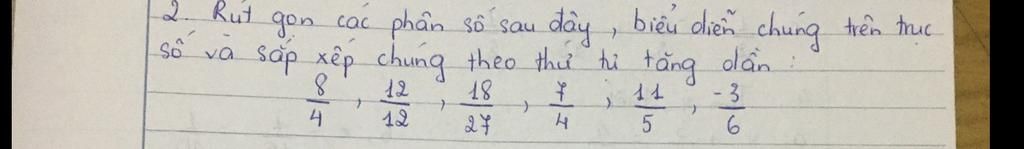 2. Rút gọn các phân số sau đây, biểu diễn chúng trên trục
số và sắp xếp chúng theo thứ tự tăng dần:
8/4, 12/12, 18/27, 7/4, 11/5, -3/6